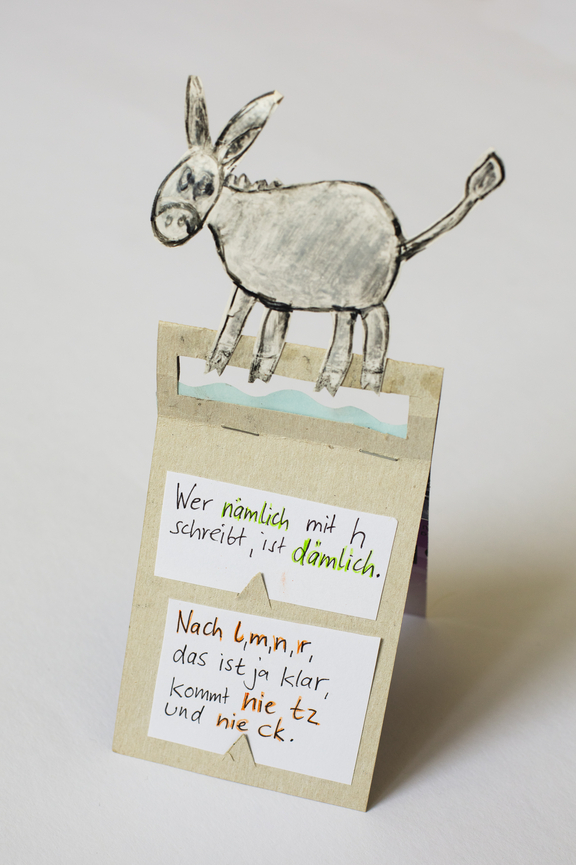 Wer nämlich mit h
schreibt, ist dämlich.
Nach l,m,n,r,
das ist ja klar,
kommt nie tz
und nie ck.